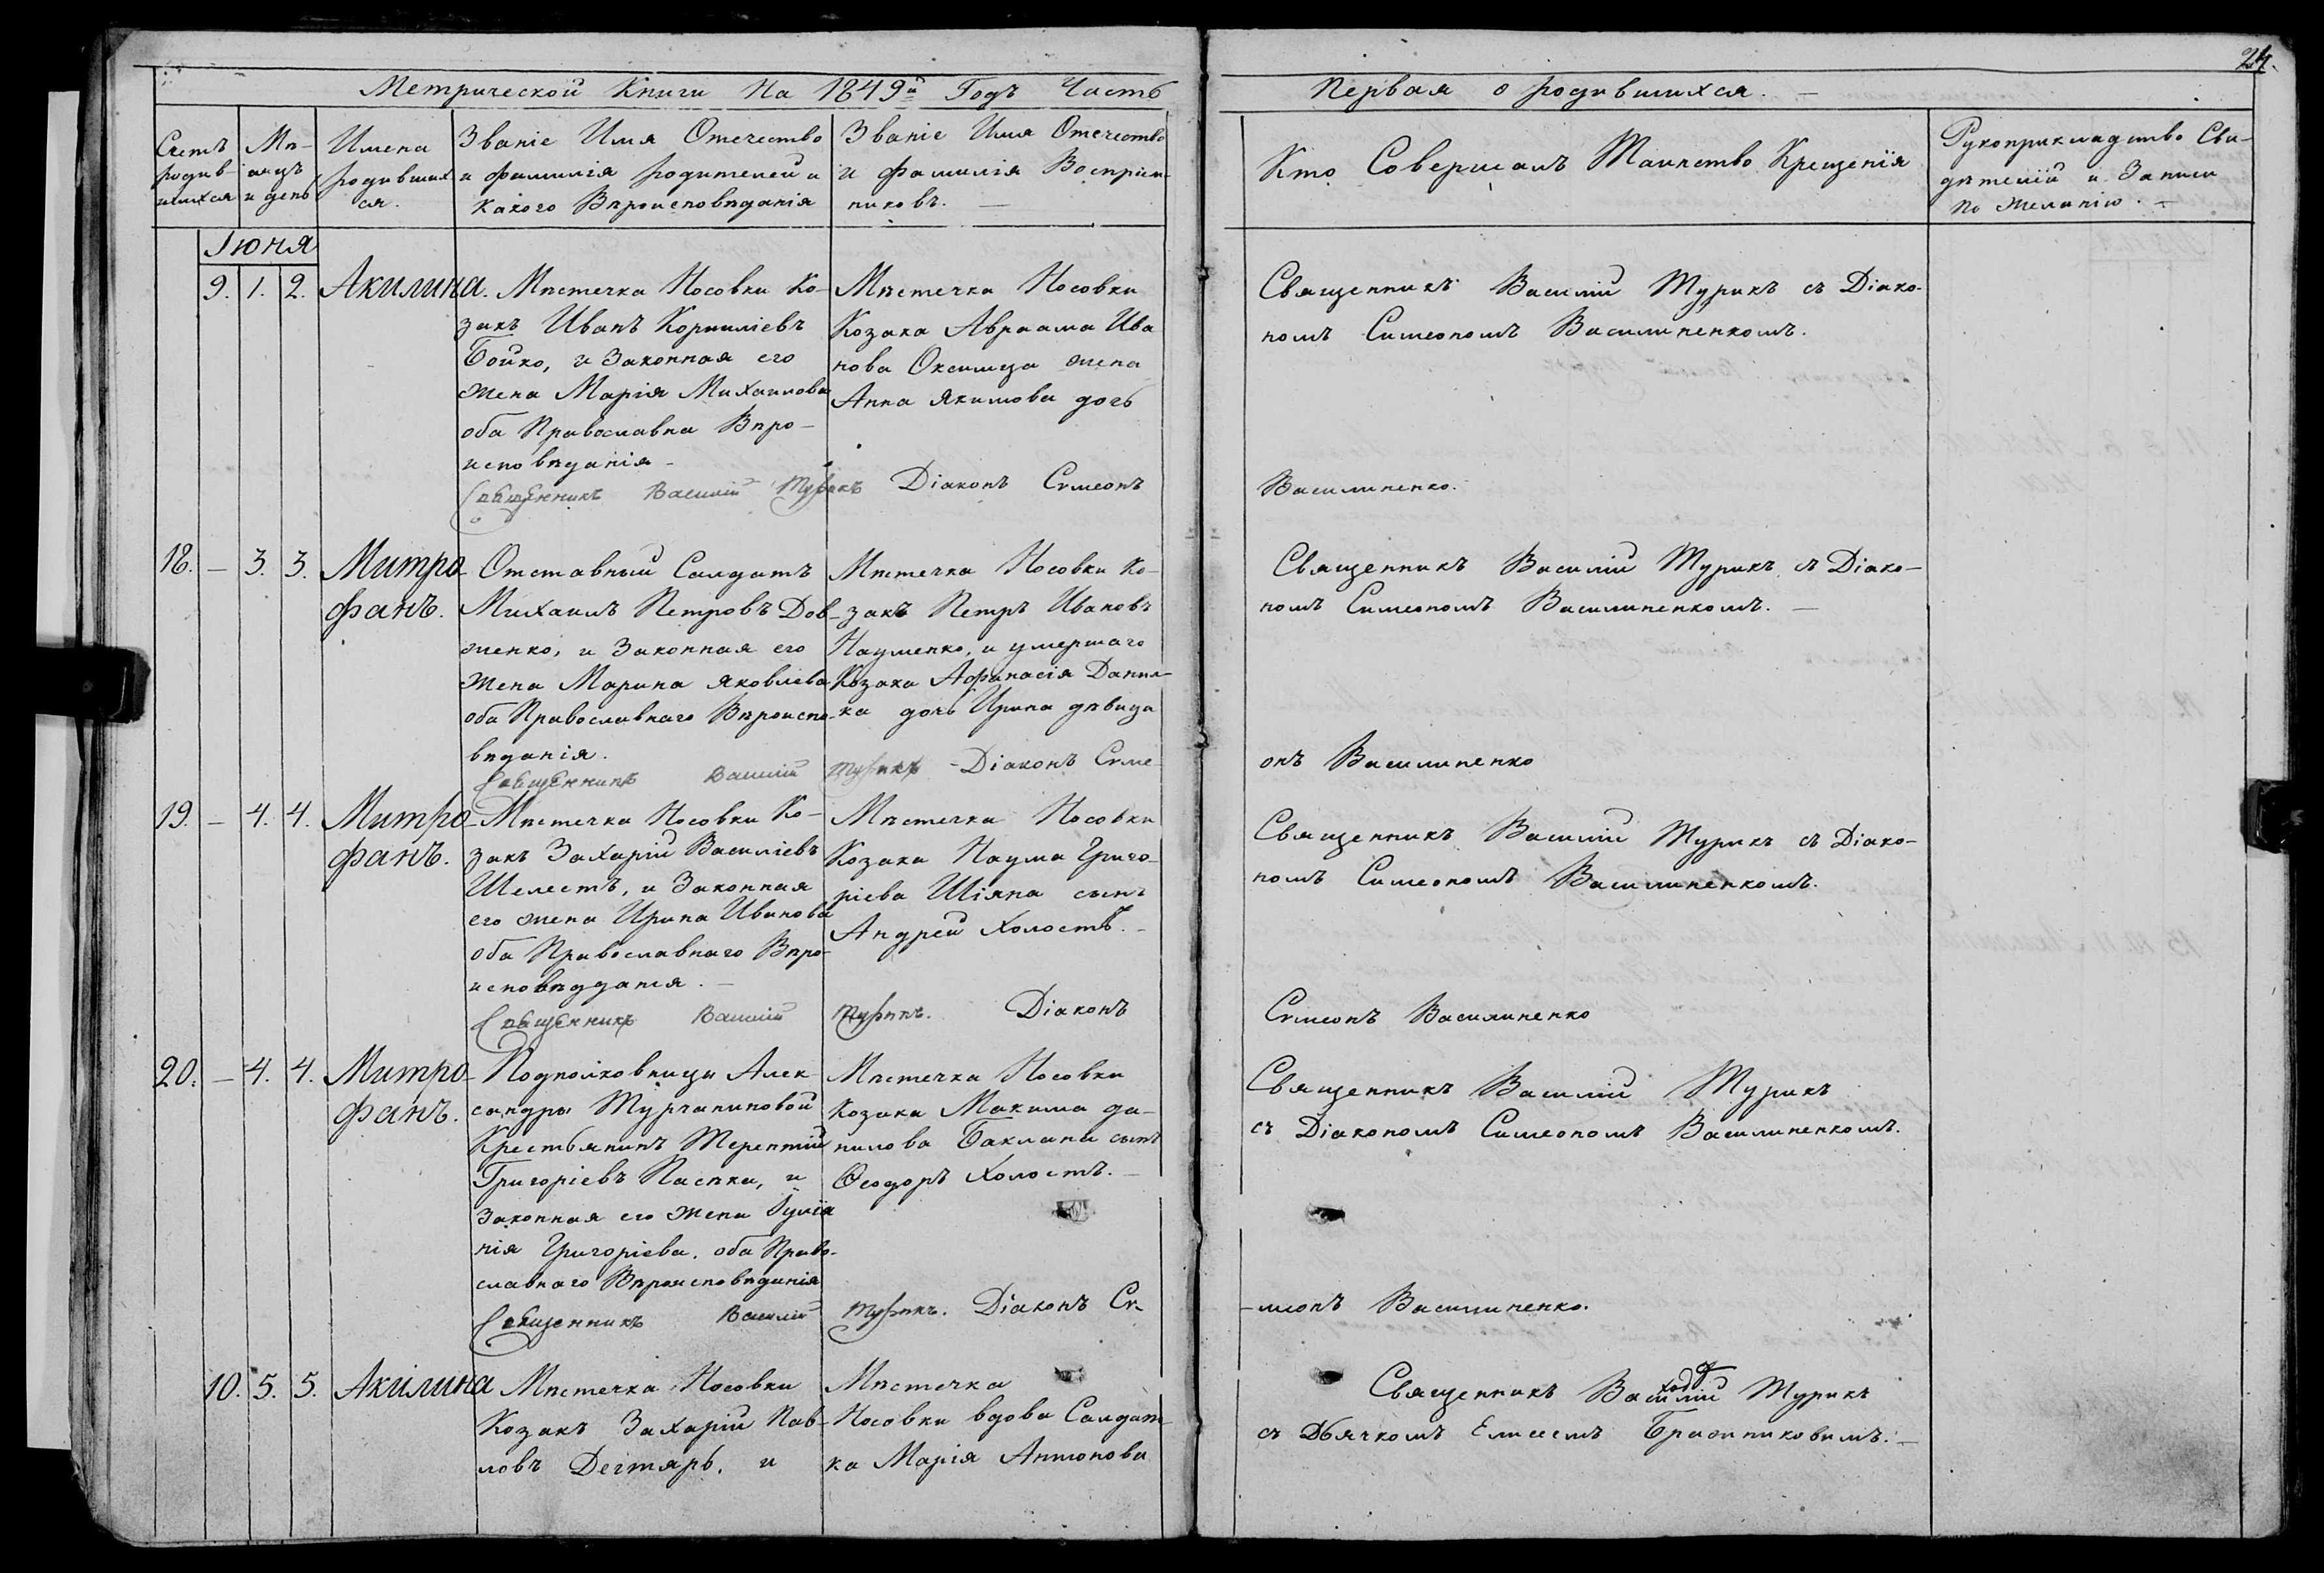 24.
Метрической Книги На 1849й Годъ Часть
Первая о родившихся. —
Счетъ родив- шихся
Мѣ- сяцъ и день
Имена родивших ся.
Званіе Имя Отечество и фамилія родителей и какого Вѣроисповѣданія
Званіе Имя Отечество и фамилія Воспріем- никовъ. —
Кто Совершалъ Таинство Крещенїя
Рукоприкладство Сви- дѣтелїй и Записи по желанію. —
Іюня
9. 1. 2. Акилина.
Мѣстечка Носовки Ко-
закъ Иванъ Корниліевъ
Бойко, и Законная его
жена Марія Михаилова
оба Православна Вѣро-
исповѣданія —
Мѣстечка Носовки
Козака Авраама Ива
нова Оксимца жена
Анна Якимова дочь
Священникъ Василій Турикъ съ Діако-
номъ Симеономъ Василиненкомъ.
Священникъ Василій Турикъ Діаконъ Сѵмеонъ
Василиненко.
18. — 3. 3. Митро
фанъ.
Отставный Салдатъ
Михаилъ Петровъ Дов-
женко, и Законная его
жена Марина Яковлева
оба Православнаго Вѣроиспо-
вѣданія.
Мѣстечка Носовки Ко-
закъ Петръ Ивановъ
Науменко, и умершаго
Козака Афанасія Данил-
ка дочь Ирина дѣвица
Священникъ Василій Турикъ съ Діако-
номъ Симеономъ Василиненкомъ. —
Священникъ Василій Турикъ Діаконъ Сѵме-
онъ Василиненко
19. — 4. 4. Митро
фанъ.
Мѣстечка Носовки Ко-
закъ Захарій Василіевъ
Шелестъ, и Законная
его жена Ирина Иванова
оба Православнаго Вѣро-
исповѣдданія. —
Мѣстечка Носовки
Козака Наума Григо-
ріева Шіяна сынъ
Андрей Холостъ. —
Священникъ Василій Турикъ съ Діако-
номъ Симеономъ Василиненкомъ.
Священникъ Василій Турикъ. Діаконъ
Сѵмеонъ Василиненко
20. — 4. 4. Митро
фанъ.
Подполковницы Алек-
сандры Турчаниновой
Крестьянинъ Терентій
Григоріевъ Пасѣка, и
Законная его жена Іулїа
нія Григоріева. оба Право-
славнаго Вѣроисповѣданія
Мѣстечка Носовки
Козака Макима да-
нилова Баклана сынъ
Ѳеодоръ Холостъ. —
Священникъ Василій Турикъ
съ Діакономъ Симеономъ Василиненкомъ.
Священникъ Василій Турикъ. Діаконъ Сѵ-
меонъ Василиненко.
10. 5. 5. Акилина
Мѣстечка Носовки
Козакъ Захарій Пав-
ловъ Дегтярь. и
Мѣстечка
Носовки вдова Салдат-
ка Марія Антонова
Священникъ Василій Турикъ
съ Дьячкомъ Елисеемъ